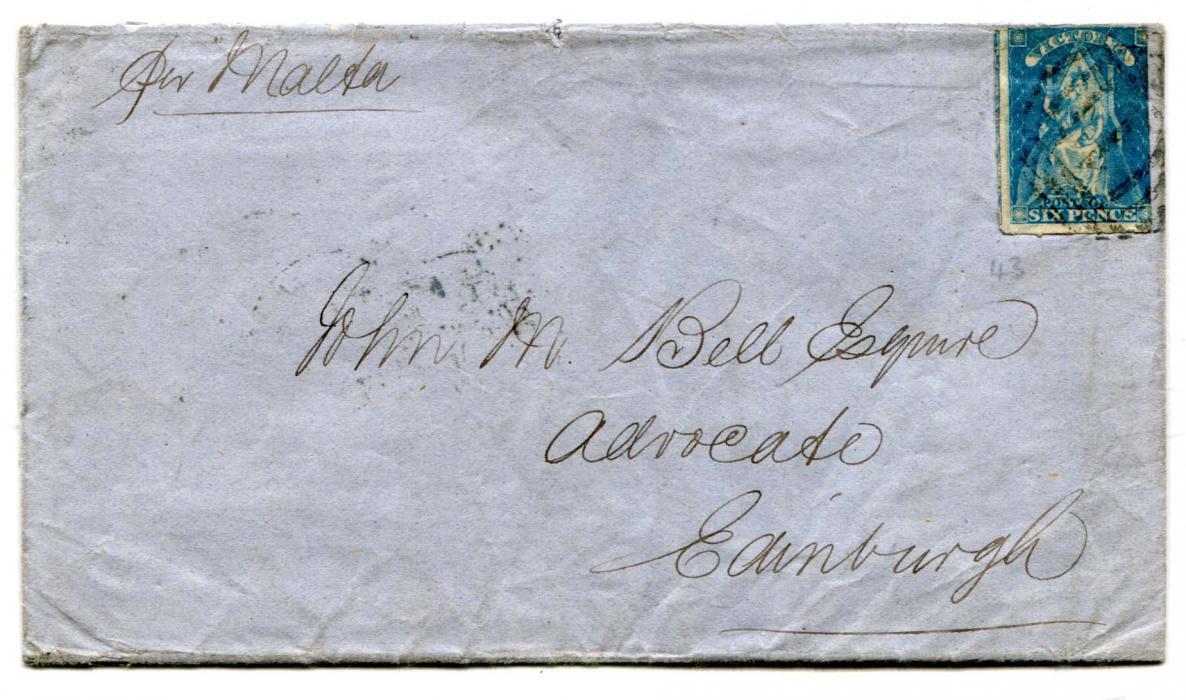 per Malta
VICTORIA
POSTAGE
SIX PENCE
43
John M. Bell Esquire
Advocate
Edinburgh